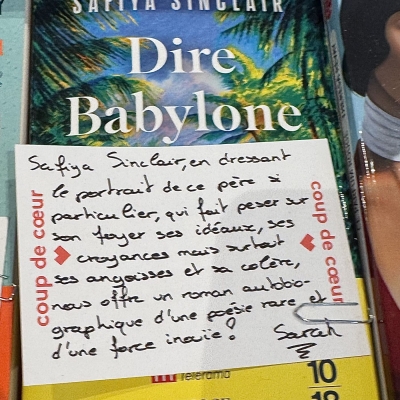 SAFIYA SINCLAIR
Dire
Babylone
Safiya Sinclair, en dressant
le portrait de ce père si
particulier, qui fait peser sur
son foyer ses idéaux, ses
croyances mais surtout
ses angoisses et sa colère,
nous offre un roman autobio-
graphique d'une poésie rare et
d'une force inouïe !
Sarah
coup de cœur
coup de cœur
Télérama
10
18